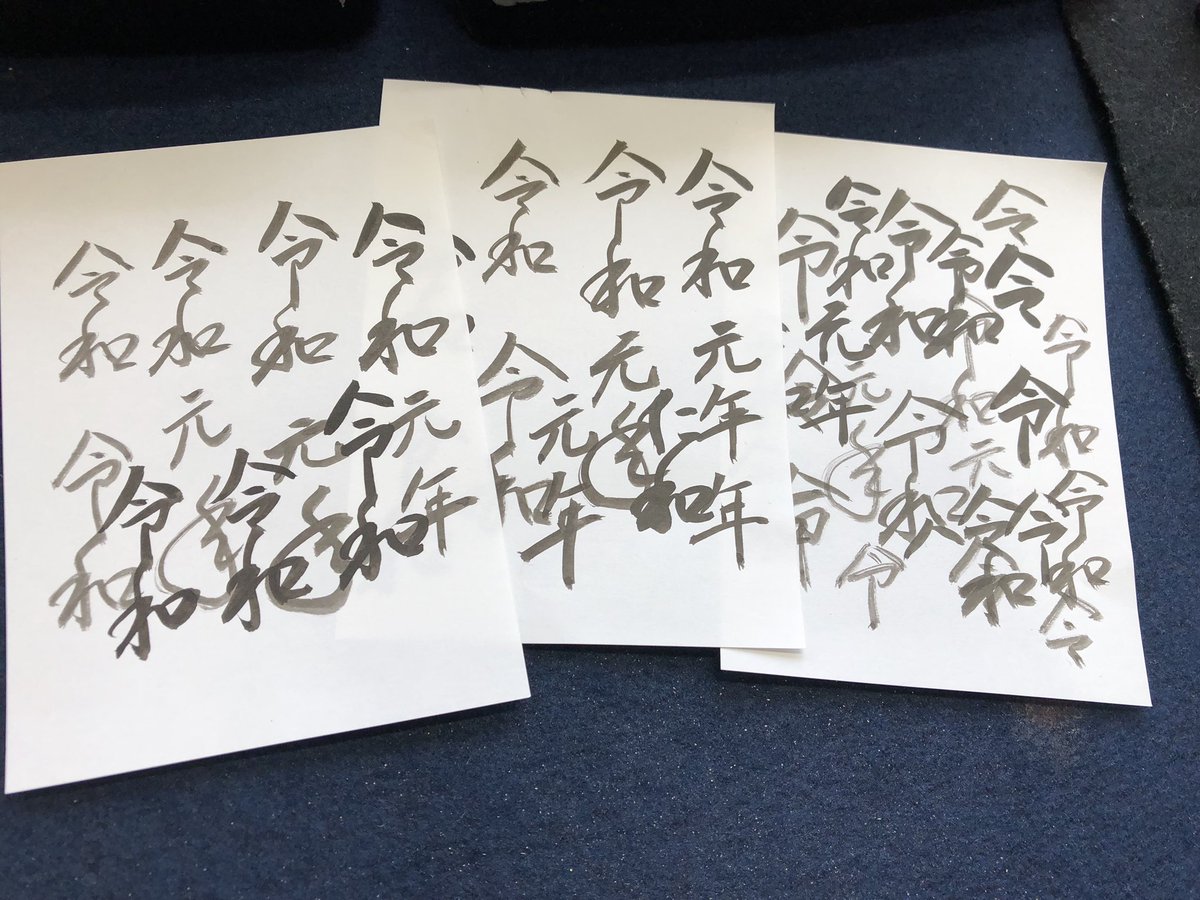 令
令
令和
令和
令和
令和元年
令
令
令和元
令和
令
令和
令
令和元年
年
令和元年
和
令和
元年
令和
令和元年
令和元年
令和元年
令和
令和
令和
令和
令和